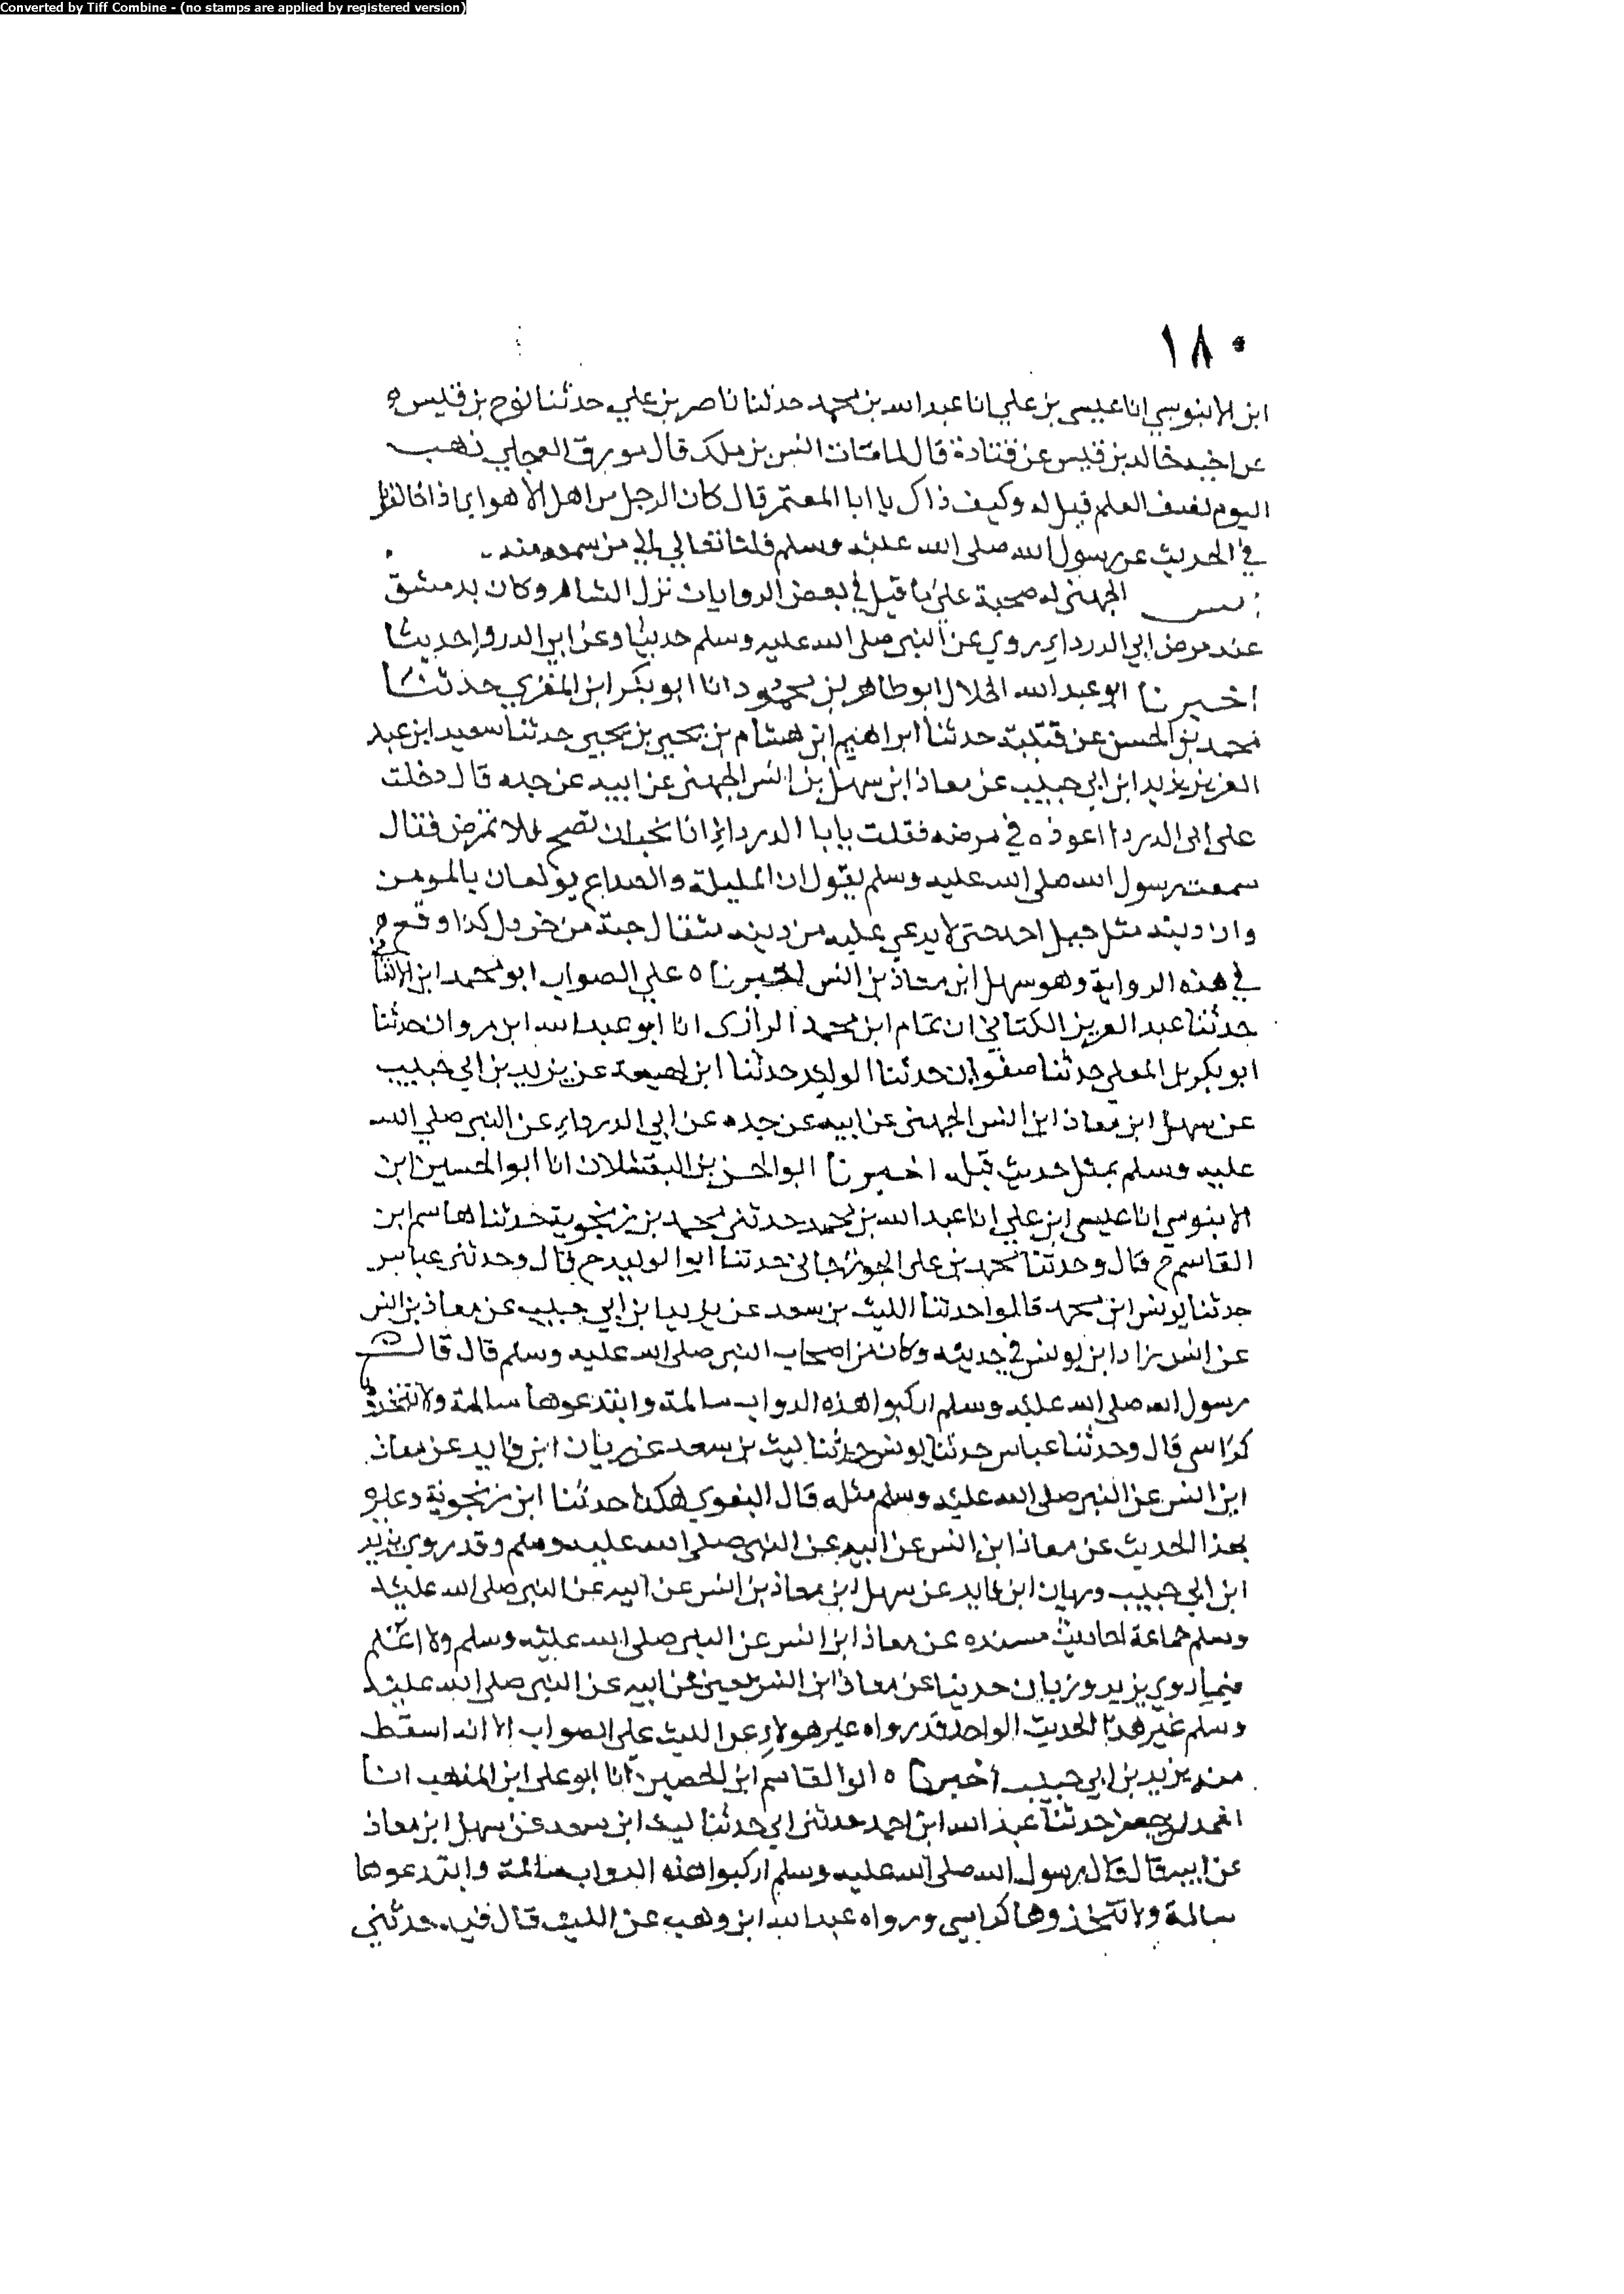 Converted by Tiff Combine - (no stamps are applied by registered version)
١٨٠
ابن الابنوسي انا عيسى بن علي انا عبد الله بن محمد حدثنا ناصر بن علي حدثنا نوح بن قيس
عن اخيه خالد بن قيس عن قتادة قال لما مات انس بن ملك قال مورق العجلي ذهب
اليوم نصف العلم قيل له وكيف ذاك يا ابا المعتمر قال كان الرجل من اهل الاهوا اذا خالفنا
في الحديث عن رسول الله صلى الله عليه وسلم قلنا تعالى الي من سمعه منه
انس الجهني له صحبة على ما قيل في بعض الروايات نزل الشام وكان بدمشق
عند مرض ابي الدرداء روي عن النبي صلى الله عليه وسلم حديثا وعن ابي الدرداء حديثا
اخبرنا ابو عبد الله الخلال ابو طاهر بن محمود انا ابو بكر ابن المقري حدثنا
محمد بن الحسن عن قتيبة حدثنا ابراهيم ابن هشام بن يحيى بن يحيى حدثنا سعيد ابن عبد
العزيز يزيد ابن ابي حبيب عن معاذ ابن سهل بن انس الجهني عن ابيه عن جده قال دخلت
على ابي الدردا اعوذه في مرضه فقلت يابا الدرداء انا نحب ان تصح فلا تمرض فقال
سمعت رسول الله صلى الله عليه وسلم يقول ان المليلة والصداع يولعان بالمومن
وان دينه مثل جبل احد حتى لا يدعي عليه من دينه مثقال حبة من خردل كذا وقع
في هذه الرواية وهو سهل ابن معاذ بن انس اخبرناه على الصواب ابو محمد ابن الاكفاني
حدثنا عبد العزيز الكتاني ان تمام ابن محمد الرازى انا ابو عبد الله ابن مروان حدثنا
ابو بكر بن المعلي حدثنا صفوان حدثنا الوليد حدثنا ابن لهيعة عن يزيد بن ابي حبيب
عن سهل ابن معاذ ابن انس الجهني عن ابيه عن جده عن ابي الدرداء عن النبي صلى الله
عليه وسلم بمثل حديث قبله اخبرنا ابو الحسن بن البقشلان انا ابو الحسين ابن
الابنوسي انا عيسى ابن علي انا عبد الله بن محمد حدثني محمد بن زنجوية حدثنا هاسم ابن
القاسم ح قال وحدثنا محمد بن على الجوزجاني حدثنا ابو الوليد ح قال وحدثني عباس
حدثنا يونس ابن محمد قالوا حدثنا الليث بن سعد عن يزيد بن ابي حبيب عن معاذ بن انس
عن انس زاد ابن يونس في حديثه وكان من اصحاب النبي صلى الله عليه وسلم قال قال
رسول الله صلى الله عليه وسلم اركبوا هذه الدواب سالمة وابتدعوها سالمة ولا تتخذوها
كراسي قال وحدثنا عباس حدثنا يونس حدثنا ليث بن سعد عن زبان ابن فايد عن معاذ
ابن انس عن النبي صلى الله عليه وسلم مثله قال البغوي هكذا حدثنا ابن زنجوية وغيره
بهذا الحديث عن معاذ ابن انس عن ابيه عن النبي صلى الله عليه وسلم وقد روي يزيد
ابن ابي حبيب وزبان ابن فايد عن سهل ابن معاذ بن انس عن ابيه عن النبي صلى الله عليه
وسلم جماعة احاديث مسنده عن معاذ ابن انس عن النبي صلى الله عليه وسلم ولا اعلم
فيما روي يزيد وزبان حديثا عن معاذ ابن انس يعني عن ابيه عن النبي صلى الله عليه
وسلم غير هذا الحديث الواحد قد رواه غير هولاء عن الليث على الصواب الا انه اسقط
منه يزيد بن ابي حبيب اخبرناه ابو القاسم ابن الحصين انا ابو على ابن المذهب انا
احمد بن جعفر حدثنا عبد الله ابن احمد حدثني ابي حدثنا ليث ابن سعد عن سهل ابن معاذ
عن ابيه قال قال رسول الله صلى الله عليه وسلم اركبوا هذه الدواب سالمة وابتدعوها
سالمة ولا تتخذوها كراسي ورواه عبد الله ابن وهب عن الليث قال فيه حدثني